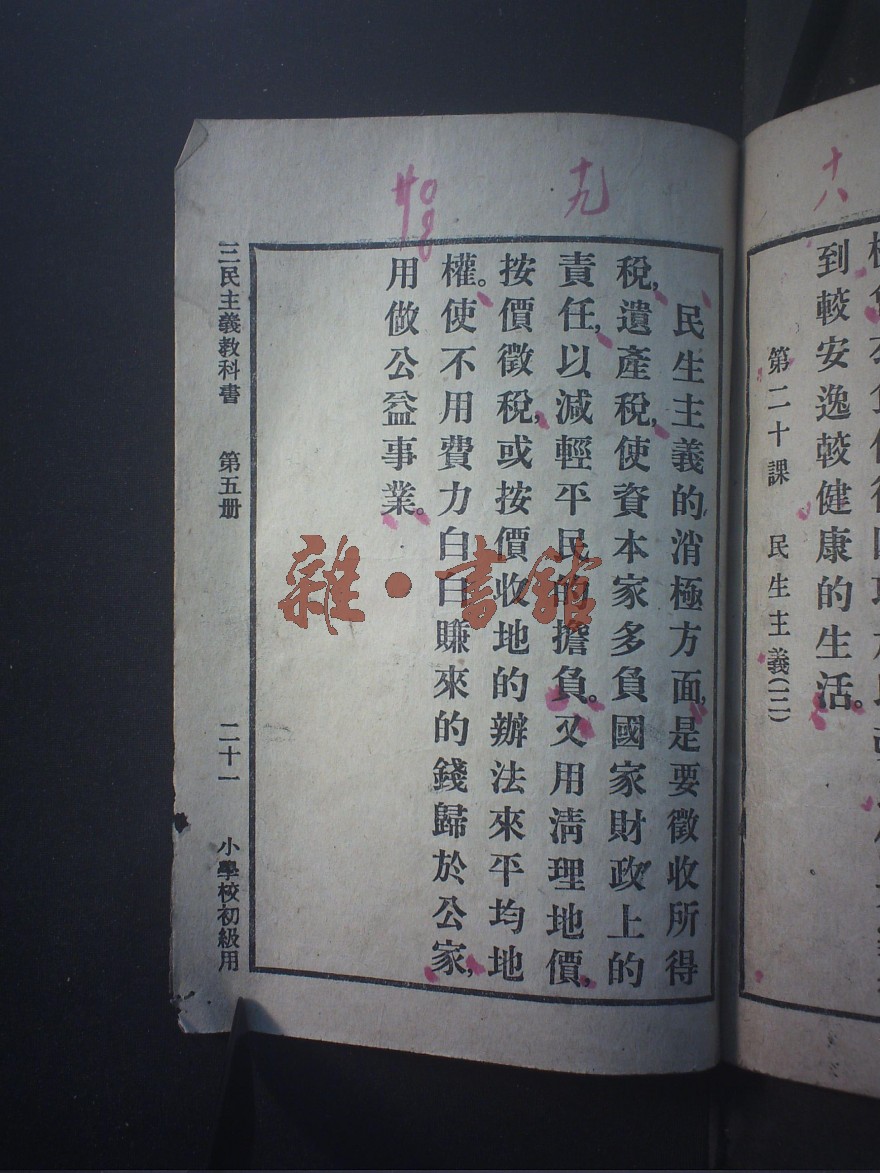 十八
到較安逸較健康的生活。
第二十課 民生主義(二)
十九
民生主義的消極方面,是要徵收所得
稅,遺產稅,使資本家多負國家財政上的
責任,以減輕平民的擔負。又用清理地價,
按價徵稅,或按價收地的辦法來平均地
權。使不用費力白白賺來的錢歸於公家,
用做公益事業。
三民主義教科書 第五册 二十一 小學校初級用
雜·書館